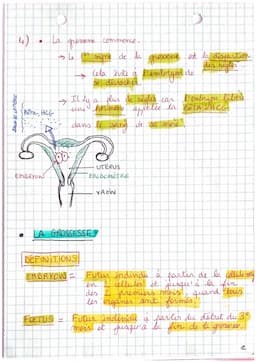 • La grossesse commence.
→ le 1er signe de la grossesse est la disparition des règles
→ Cela évite à l'embryon de se décrocher
→ Il n'y a plus de règles car l'embryon libère une hormone appelée la BETA-HCG
dans le sang de la mère
BETA-HCG
UTERUS
EMBRYON
ENDOMETRE
VAGIN
• LA GROSSESSE
DÉFINITIONS
EMBRYON = Futur individu à partir de la cellule œuf
en 2 cellules et jusqu'à la fin
des 2 premiers mois quand tous
les organes sont formés.
FOETUS = Futur individu à partir du début du 3e
mois et jusqu'à la fin de la grossesse.